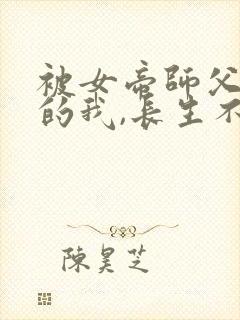 被女帝師父
的我,長生不
陳昊芝